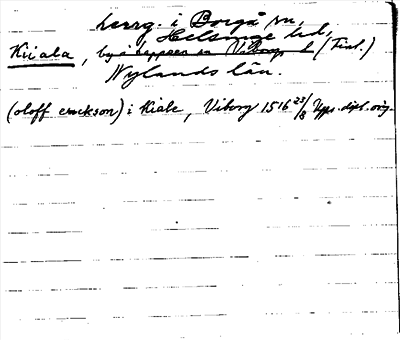 herrg. i Borgå sn,
Helsinge hd,
Kiiala, by i Leppeen sn Viborgs l (Finl.)
Nylands län.
(oloff erickson) i Kiale, Viborg 1516 23/8 Upps. dipl. orig.